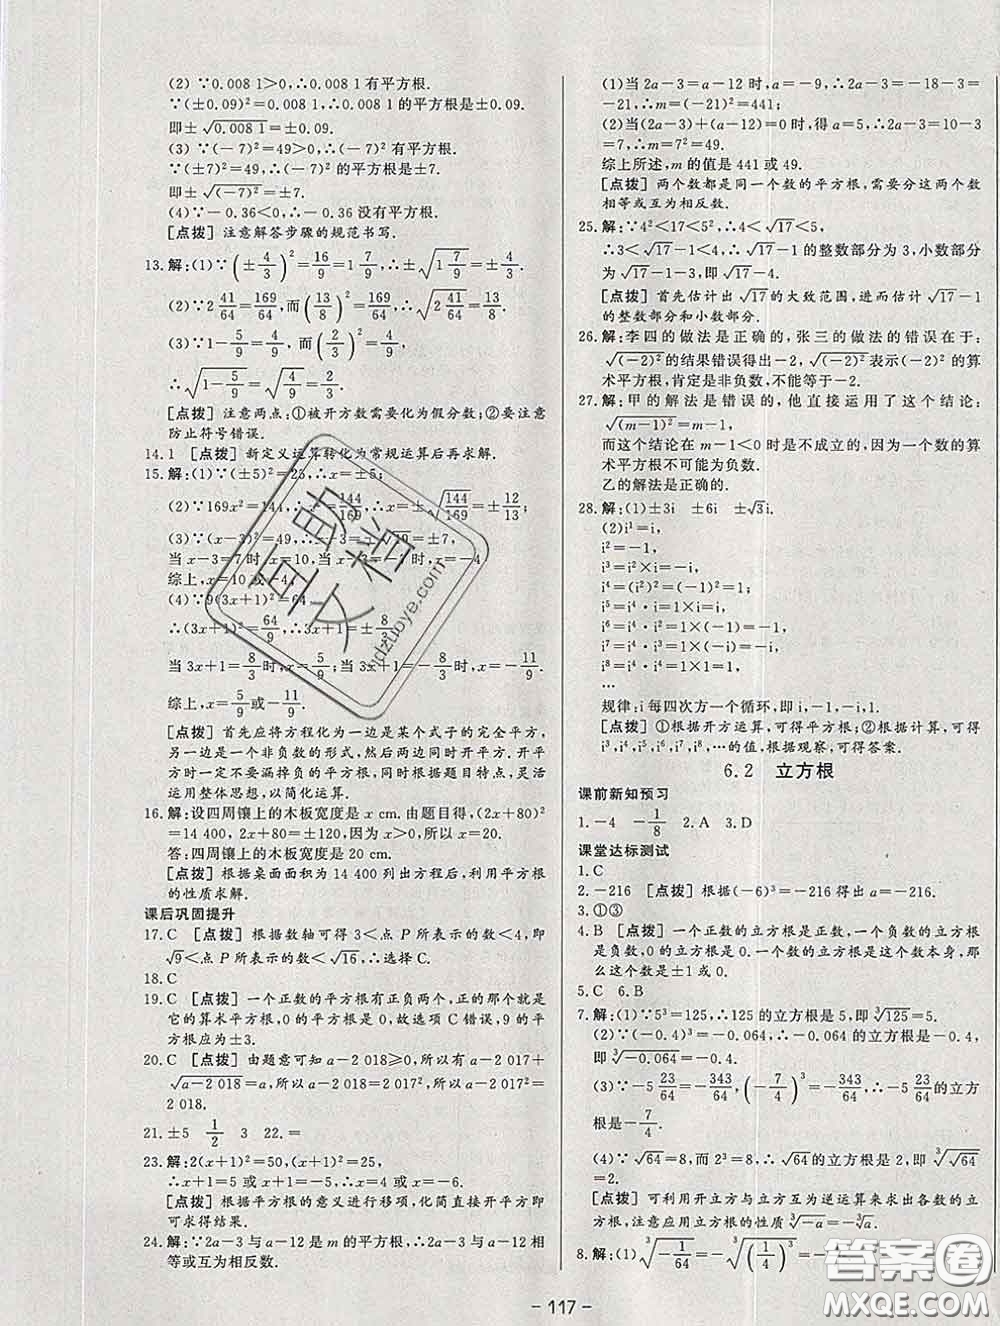 (2)∵0.008 1>0,∴0.008 1有平方根.
∵(±0.09)²=0.008 1,∴0.008 1的平方根是±0.09.
即±√0.008 1=±0.09.
(3)∵(-7)²=49>0,∴(-7)²有平方根.
∵(±7)²=49,∴(-7)²的平方根是±7.
即±√(-7)²=±7.
(4)∵-0.36<0,∴-0.36没有平方根.
[点拨]注意解答步骤的规范书写.
13.解:(1)∵(±4/3)²=16/9=1 7/9,∴±√(1 7/9)=±4/3.
(2)∵2 41/64=169/64,而(13/8)²=169/64,∴√(2 41/64)=13/8.
(3)∵1-5/9=4/9,而(2/3)²=4/9,
∴√(1-5/9)=√(4/9)=2/3.
[点拨]注意两点:①被开方数需要化为假分数;②要注意
防止符号错误.
14.1 [点拨]新定义运算转化为常规运算后再求解.
15.解:(1)∵(±5)²=25,∴x=±5;
(2)∵169x²=144,∴x²=144/169,∴x=±√(144/169)=±12/13;
(3)∵(x-3)²=49,∴x-3=±7,
当x-3=7时,x=10,当x-3=-7时,x=-4
综上,x=10或-4;
(4)∵9(3x+1)²=64,
∴(3x+1)²=64/9,∴3x+1=±8/3.
当3x+1=8/3时,x=5/9;当3x+1=-8/3时,x=-11/9.
综上,x=5/9或-11/9.
[点拨]首先应将方程化为一边是某个式子的完全平方,
另一边是一个非负数的形式,然后两边同时开平方.开平
方时不要漏掉负的平方根,同时根据题目特点,灵活
运用整体思想,以简化运算.
16.解:设四周镶上的木板宽度是x cm.由题目得,(2x+80)²
=14 400,2x+80=±120,因为x>0,所以x=20.
答:四周镶上的木板宽度是20 cm.
[点拨]根据桌面面积为14 400列出方程后,利用平方根
的性质求解.
课后巩固提升
17.C [点拨]根据数轴可得3<点P所表示的数<4,即
√9<点P所表示的数<√16,选择C.
18.C
19.C [点拨]一个正数的平方根有正负两个,正的那个就是
它的算术平方根,0的平方根是0,故选项C错误,9的平
方根应为±3.
20.C [点拨]由题意可知a-2 018≥0,所以有a-2 017+
√a-2 018=a,所以√a-2 018=2 017,所以a-2 017²=
2 018.
21.±5 1/2 3 22.=
23.解:2(x+1)²=50,(x+1)²=25,
∴x+1=5或x+1=-5,∴x=4或x=-6.
[点拨]根据平方根的意义进行移项,化简直接开平方即
可求得结果.
24.解:∵2a-3与a-12是m的平方根,∴2a-3与a-12相
等或互为相反数.
(1)当2a-3=a-12时,a=-9,∴2a-3=-18-3=
-21,∴m=(-21)²=441;
(2)当(2a-3)+(a-12)=0时,得a=5,∴2a-3=10-3
=7,∴m=7²=49.
综上所述,m的值是441或49.
[点拨]两个数都是同一个数的平方根,需要分这两个数
相等或互为相反数.
25.解:∵4²<17<5²,∴4<√17<5,
∴3<√17-1<4,∴√17-1的整数部分为3,小数部分是
√17-1-3,即√17-4.
[点拨]首先估计出√17的大致范围,进而估计√17-1
的整数部分和小数部分.
26.解:李四的做法是正确的,张三的做法的错误在于:
√(-2)²的结果错误得出-2,√(-2)²表示(-2)²的算
术平方根,肯定是非负数,不能等于-2.
27.解:甲的解法是错误的,他直接运用了这个结论:
√(m-1)²=m-1,
而这个结论在m-1<0时是不成立的,因为一个数的算
术平方根不可能为负数.
乙的解法是正确的.
28.解:(1)±i ±6i ±√3i.
(2)i¹=i,
i²=-1,
i³=i²×i=-i,
i⁴=(i²)²=(-1)²=1,
i⁵=i⁴·i=1×i=i,
i⁶=i⁴·i²=1×(-1)=-1,
i⁷=i⁴·i³=1×(-i)=-i,
i⁸=i⁴·i⁴=1×1=1,
…
规律:i每四次方一个循环,即i,-1,-i,1.
[点拨]①根据开方运算,可得平方根;②根据计算,可得
i³,i⁴,i⁵,i⁶,i⁷,i⁸,…的值,根据观察,可得答案.
6.2 立方根
课前新知预习
1.-4 -1/8 2.A 3.D
课堂达标测试
1.C
2.-216 [点拨]根据(-6)³=-216得出a=-216.
3.①③
4.B [点拨]一个正数的立方根是正数,一个负数的立方根
是负数,0的立方根是0.一个数的立方根是这个数本身,那
么这个数是±1或0.
5.C 6.B
7.解:(1)∵5³=125,∴125的立方根是5,即∛125=5.
(2)∵(-0.4)³=-0.064,∴-0.064的立方根是-0.4,
即∛-0.064=-0.4.
(3)∵-5 23/64=-343/64,(-7/4)³=-343/64,∴-5 23/64的立方
根是-7/4.
(4)∵√64=8,而2³=8,∴√64的立方根是2,即∛√64=2.
[点拨]可利用开立方与立方互为逆运算来求出各数的立
方根,注意应用立方根的性质∛-a=-∛a.
8.解:(1)∛(-1/64)=-∛(1/4)³=-
- 117 -
互助文档
hdzuoye.com
答案圈
MXQE.COM